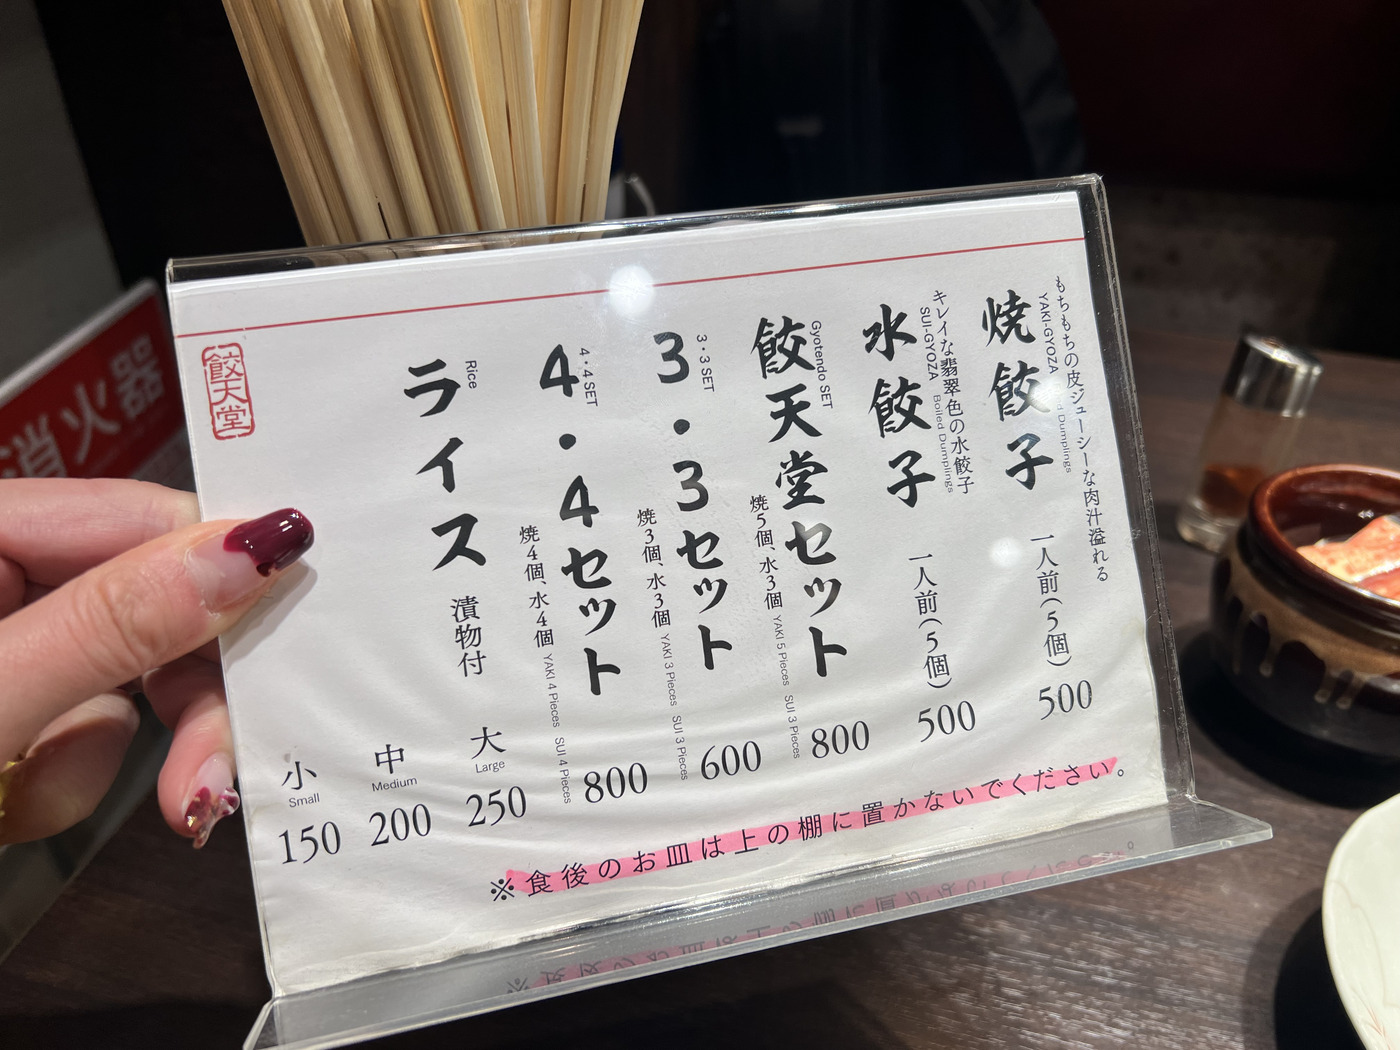 もちもちの皮ジューシーな肉汁溢れる
YAKI-GYOZA
焼餃子
一人前(5個)
500
キレイな翡翠色の水餃子
SUI-GYOZA Boiled Dumplings
水餃子
一人前(5個)
500
Gyotendo SET
餃天堂セット
焼5個、水3個
YAKI 5 Pieces SUI 3 Pieces
800
3・3 SET
3・3セット
焼3個、水3個
YAKI 3 Pieces SUI 3 Pieces
600
4・4 SET
4・4セット
焼4個、水4個
YAKI 4 Pieces SUI 4 Pieces
800
Rice
ライス
漬物付
大
Large
250
中
Medium
200
小
Small
150
餃天堂
※食後のお皿は上の棚に置かないでください。
消火器